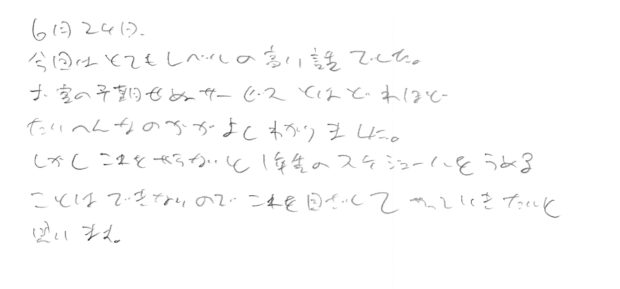 6月24日.
今回はとてもレベルの高い話でした。
お客の予期せぬサービスとはどれほど
たいへんなのかがよくわかりました。
しかしこれをやらないと1年生のスケジュールをうめる
ことはできないのでこれを目ざしてやっていきたいと
思います。